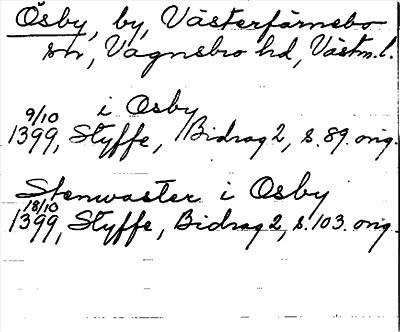 Ösby, by, Västerfärnebo
sn, Vagnsbro hd, Västm. l.
i Osby
9/10
1399, Styffe, Bidrag 2, s. 89. orig.
Stenwaster i Osby
18/10
1399, Styffe, Bidrag 2, s. 103. orig.